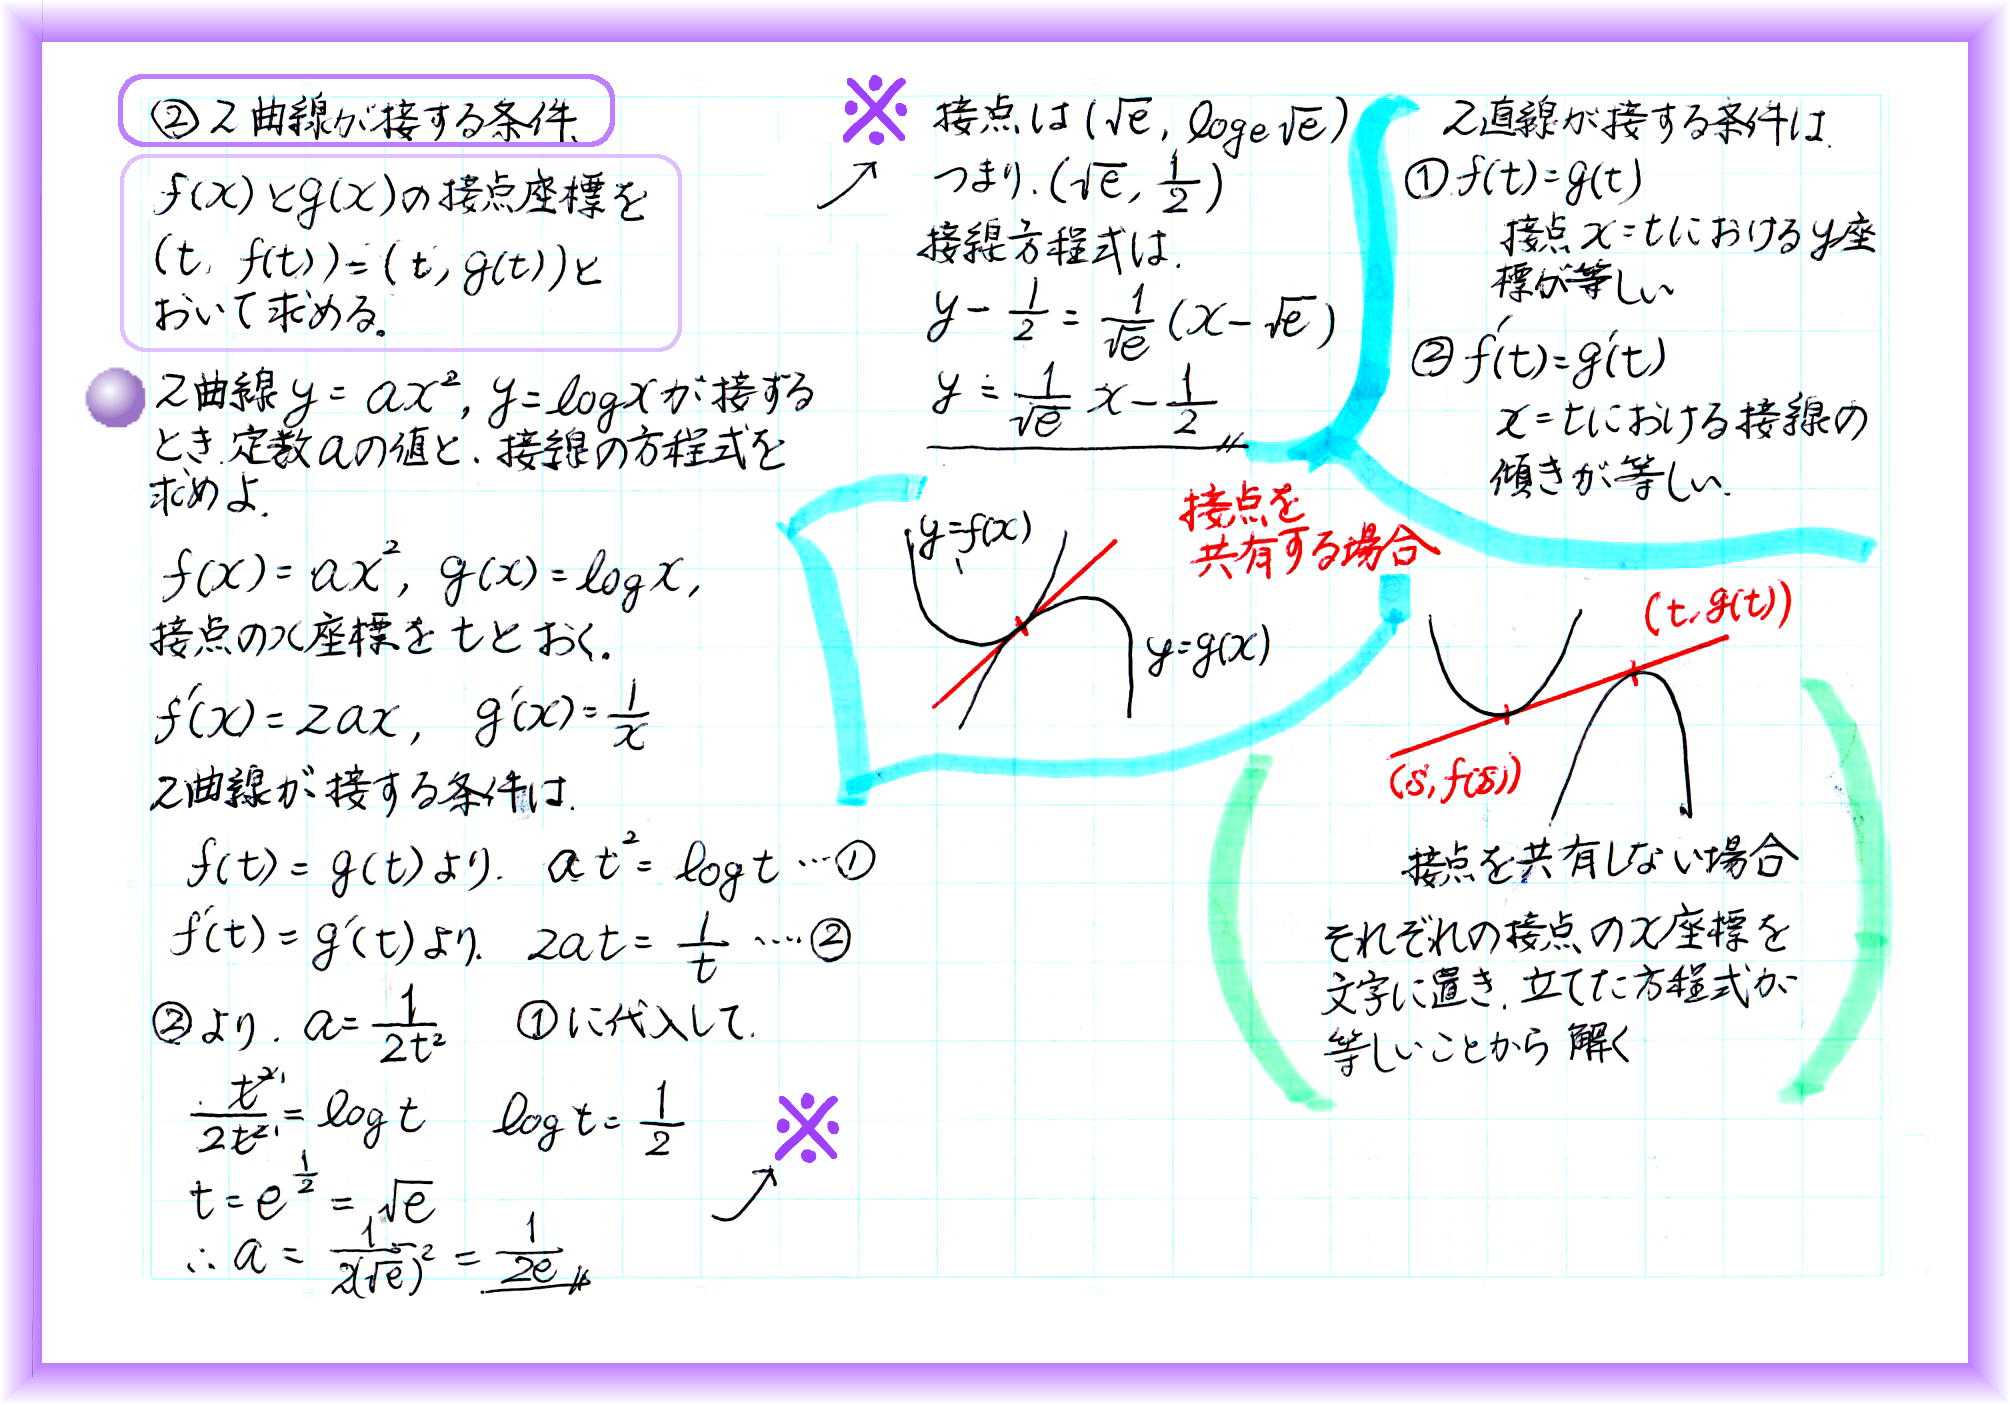 ② 2曲線が接する条件
f(x)とg(x)の接点座標を
(t, f(t))=(t, g(t))と
おいて求める。
2曲線 y=ax², y=logxが接する
とき.定数aの値と、接線の方程式を
求めよ.
f(x)=ax², g(x)=logx,
接点のx座標をtとおく.
f′(x)=2ax, g′(x)=1/x
2曲線が接する条件は.
f(t)=g(t)より. at²=logt…①
f′(t)=g′(t)より. 2at=1/t ….②
②より. a=1/2t² ①に代入して.
t²/2t²=logt logt=1/2
t=e^(1/2)=√e
∴a=1/2(√e)²=1/2e
※
※ 接点は(√e, logₑ√e)
つまり.(√e, 1/2)
接線方程式は.
y-1/2=1/√e(x-√e)
y=1/√e x-1/2
2直線が接する条件は.
① f(t)=g(t)
接点x=tにおけるy座
標が等しい
② f′(t)=g′(t)
x=tにおける接線の
傾きが等しい.
接点を
共有する場合
y=f(x)
y=g(x)
(t, g(t))
(s, f(s))
接点を共有しない場合
それぞれの接点のx座標を
文字に置き.立てた方程式が
等しいことから解く